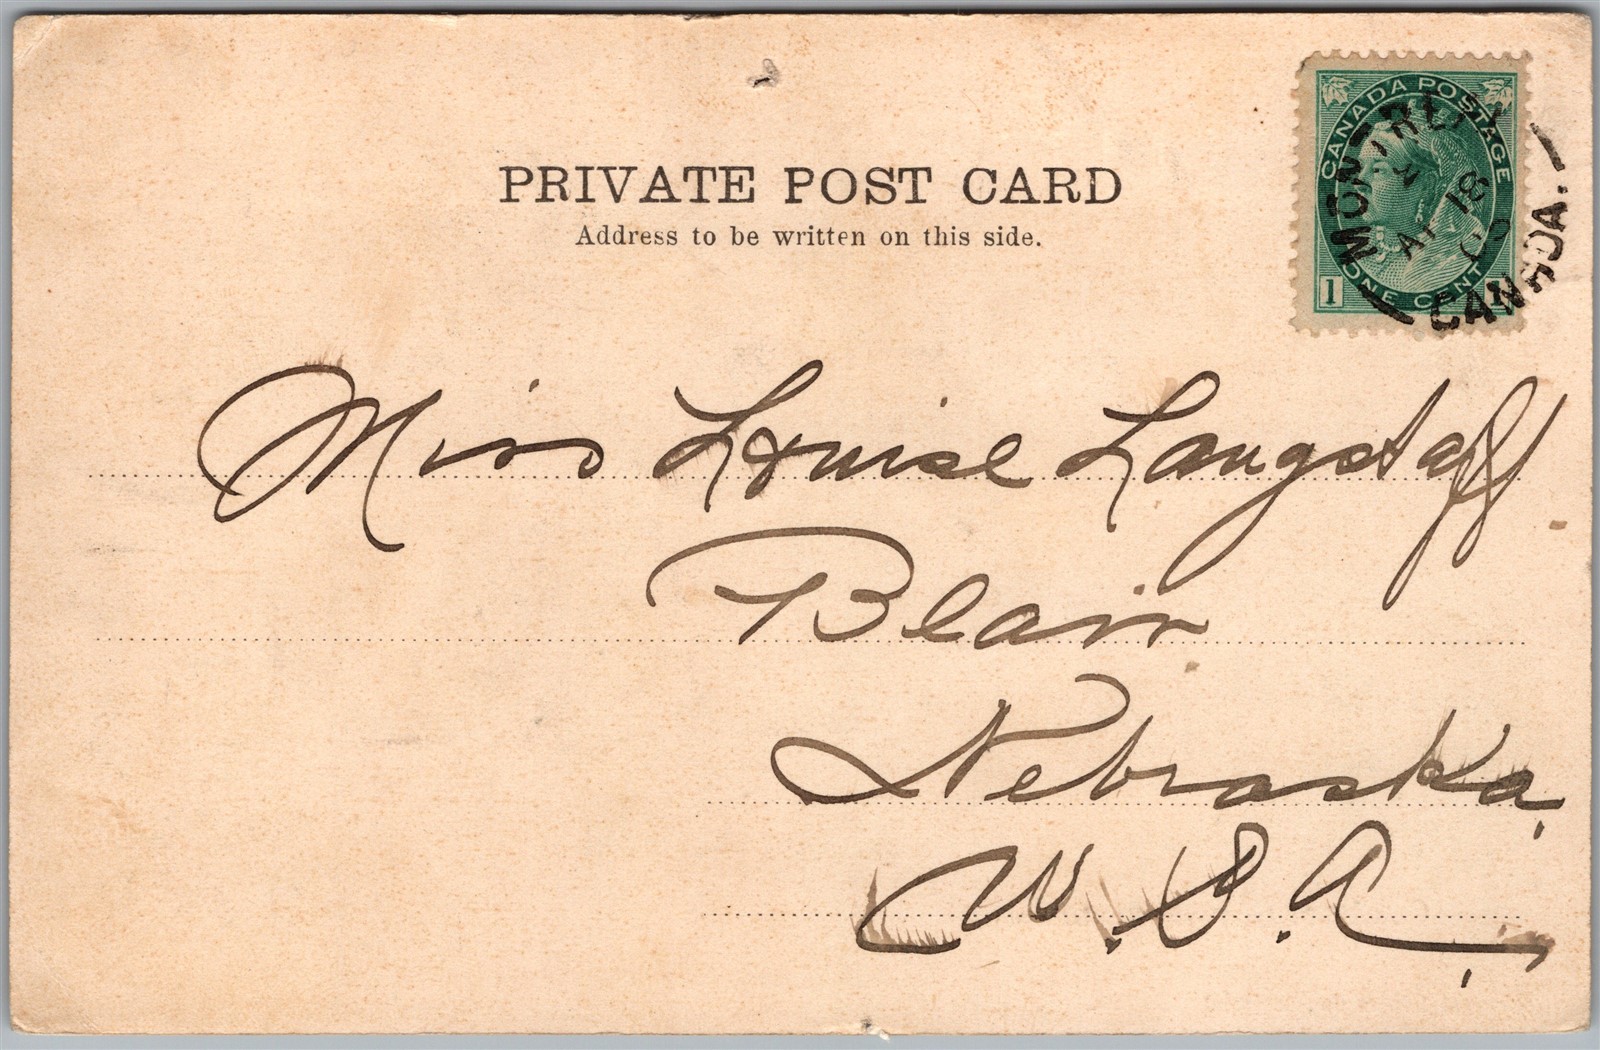 CANADA POSTAGE
1 ONE CENT 1
MONTREAL
18
CANADA.
PRIVATE POST CARD
Address to be written on this side.
Miss Louise Langstaff
Blair
Nebraska,
U. S. A.